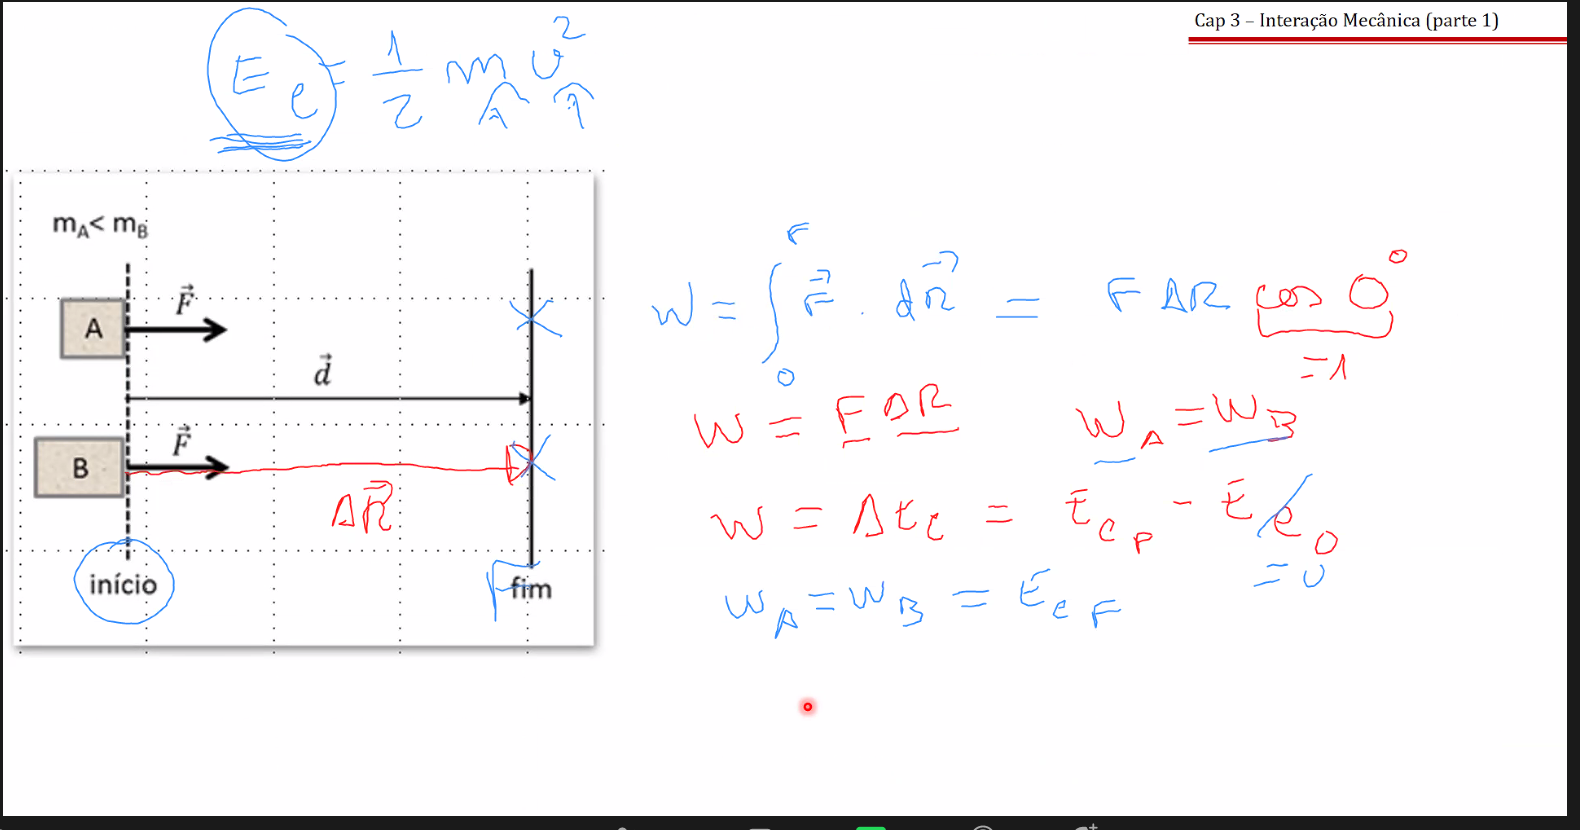 Cap 3 – Interação Mecânica (parte 1)
E c = 1/2 m v²
m_A < m_B
A
F⃗
d⃗
B
F⃗
ΔR⃗
início
F fim
W = ∫₀^F F⃗ · dR⃗ = F ΔR cos 0°
=1
W = F ΔR
W_A = W_B
W = ΔE_c = E_c_F - E_c_0
=0
W_A = W_B = E_c_F